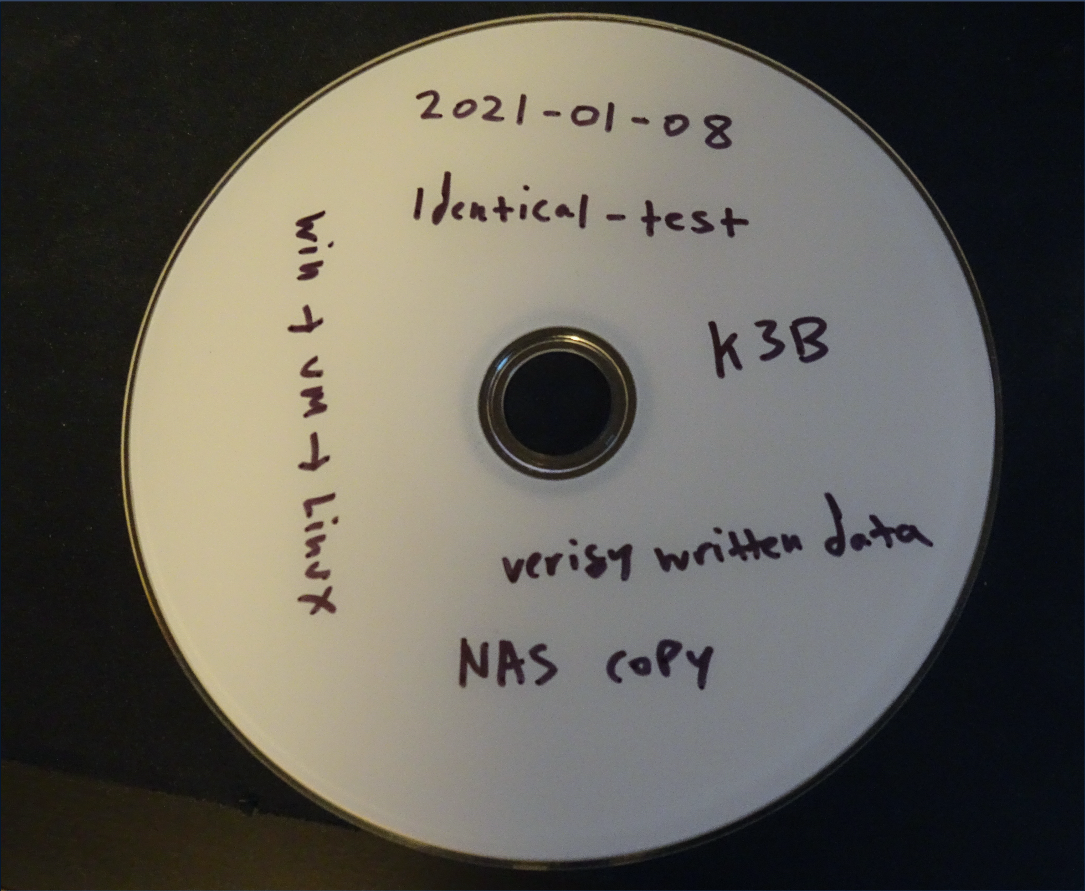 2021-01-08
Identical-test
K3B
Win + VM + Linux
verify written data
NAS copy